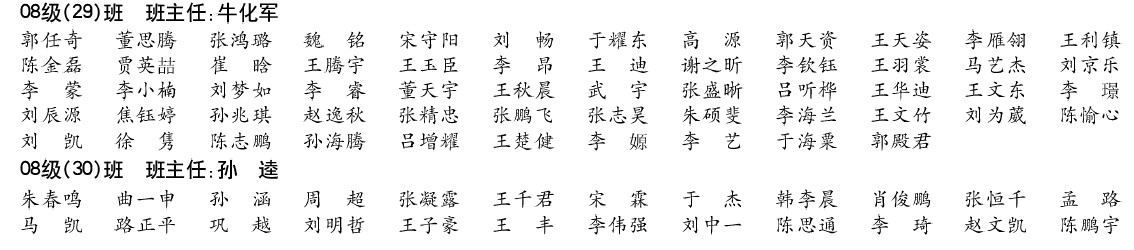 08级(29)班 班主任:牛化军
郭任奇 董思腾 张鸿璐 魏铭 宋守阳 刘畅 于耀东 高源 郭天资 王天姿 李雁翎 王利镇
陈金磊 贾英喆 崔晗 王腾宇 王玉臣 李昂 王迪 谢之昕 李钦钰 王羽裳 马艺杰 刘京乐
李蒙 李小楠 刘梦如 李睿 董天宇 王秋晨 武宇 张盛晰 吕听桦 王华迪 王文东 李璟
刘辰源 焦钰婷 孙兆琪 赵逸秋 张精忠 张鹏飞 张志昊 朱硕斐 李海兰 王文竹 刘为葳 陈愉心
刘凯 徐隽 陈志鹏 孙海腾 吕增耀 王楚健 李嫄 李艺 于海粟 郭殿君
08级(30)班 班主任:孙逵
朱春鸣 曲一申 孙涵 周超 张凝露 王千君 宋霖 于杰 韩李晨 肖俊鹏 张恒千 孟路
马凯 路正平 巩越 刘明哲 王子豪 王丰 李伟强 刘中一 陈思通 李琦 赵文凯 陈鹏宇